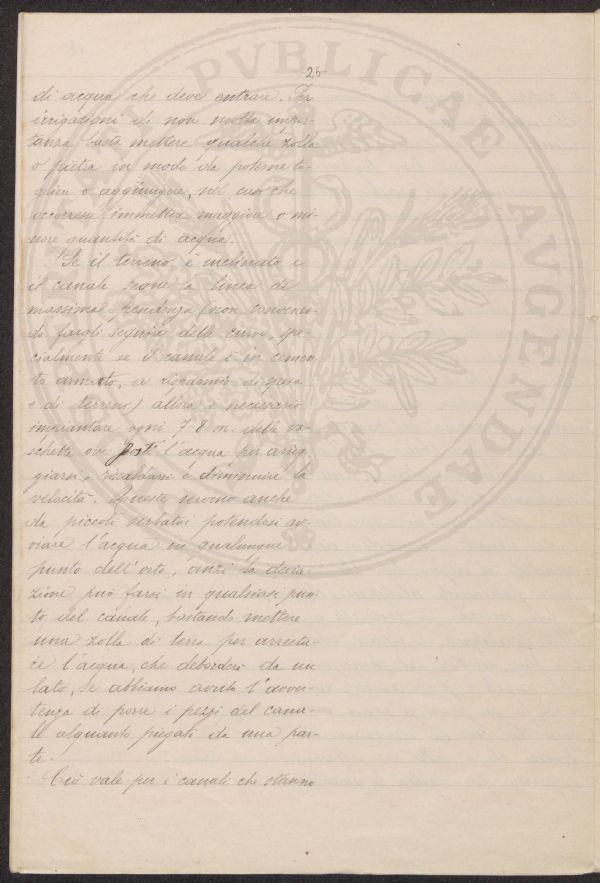 26
di acqua che deve entrare. Per
irrigazioni di non molta impor-
tanza basta mettere qualche zolla
o pietra in modo da poterne to-
gliere o aggiungere, nel caso che
occorresse immettere maggiore o mi-
nore quantità di acqua.
Se il terreno è inclinato e
il canale segue la linea di
massima pendenza (non convenen-
do fargli seguire delle curve, spe-
cialmente se il canale è in cemen
to armato, a risparmio di spesa
e di terreno) allora è necessario
impiantare ogni 7 8 m. delle va-
schette ove l'acqua per
e diminuire la
velocità. Queste servono anche
da piccoli serbatoi potendosi av-
viare l'acqua in qualunque
punto dell'orto, anzi la deria-
zione può farsi in qualsiasi pun-
to del canale, bastando mettere
una zolla di terra per arresta-
re l'acqua, che deborderà da un
lato, se abbiamo avuto l'avver-
tenza di porre i pezzi del cana-
le alquanto piegati da una par-
te.
Ciò vale per i canali che stanno
PVBLICAE AVGENDAE